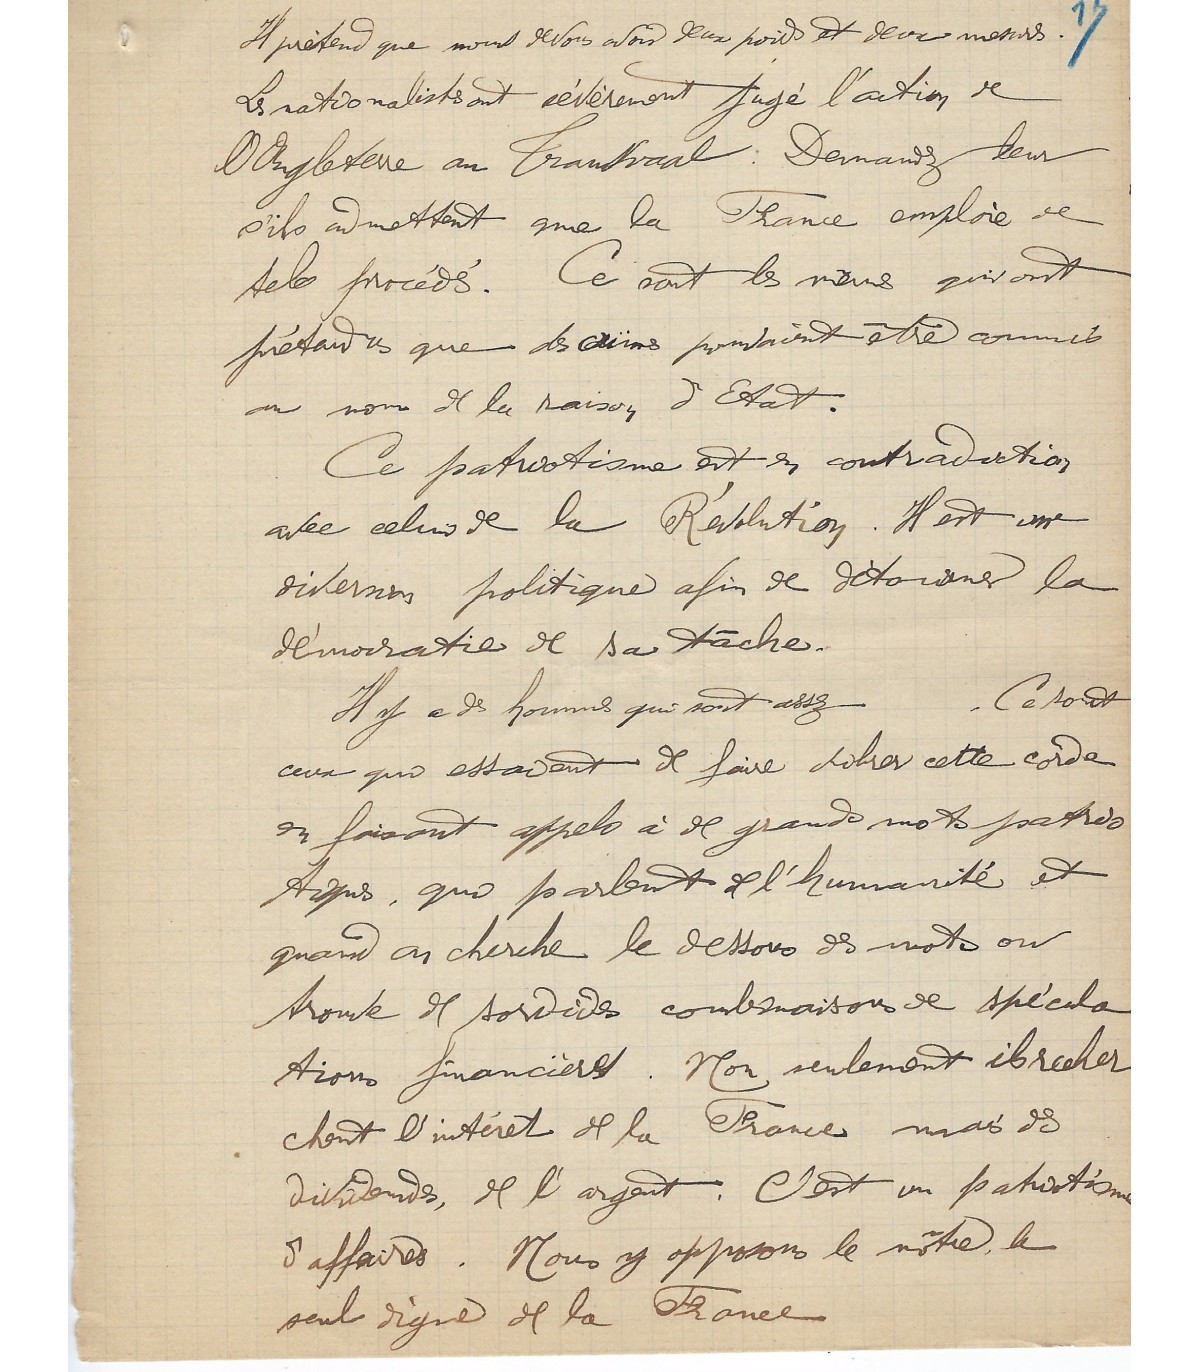 Il prétend que nous devons avoir deux poids et deux mesures.
Les nationalistes ont sévèrement jugé l'action de
l'Angleterre au Transvaal : Demandez leur
s'ils admettent que la France emploie de
tels procédés. Ce sont les mêmes qui ont
prétendus que des crimes pouvaient être commis
au nom de la raison d'Etat.
Ce patriotisme est en contradiction
avec celui de la Révolution. Il est une
diversion politique afin de détourner la
démocratie de sa tâche.
Il y a des hommes qui sont assez . Ce sont
ceux qui essaient de faire vibrer cette corde
en faisant appels à de grands mots patrio
tiques, qui parlent de l'humanité et
quand on cherche le dessous des mots on
trouve de sordides combinaisons de spécula
tions financières. Non seulement ils recher
chent l'intérêt de la France mais des
dividendes, de l'argent. C'est un patriotisme
d'affaires. Nous y opposons le nôtre, le
seul digne de la France